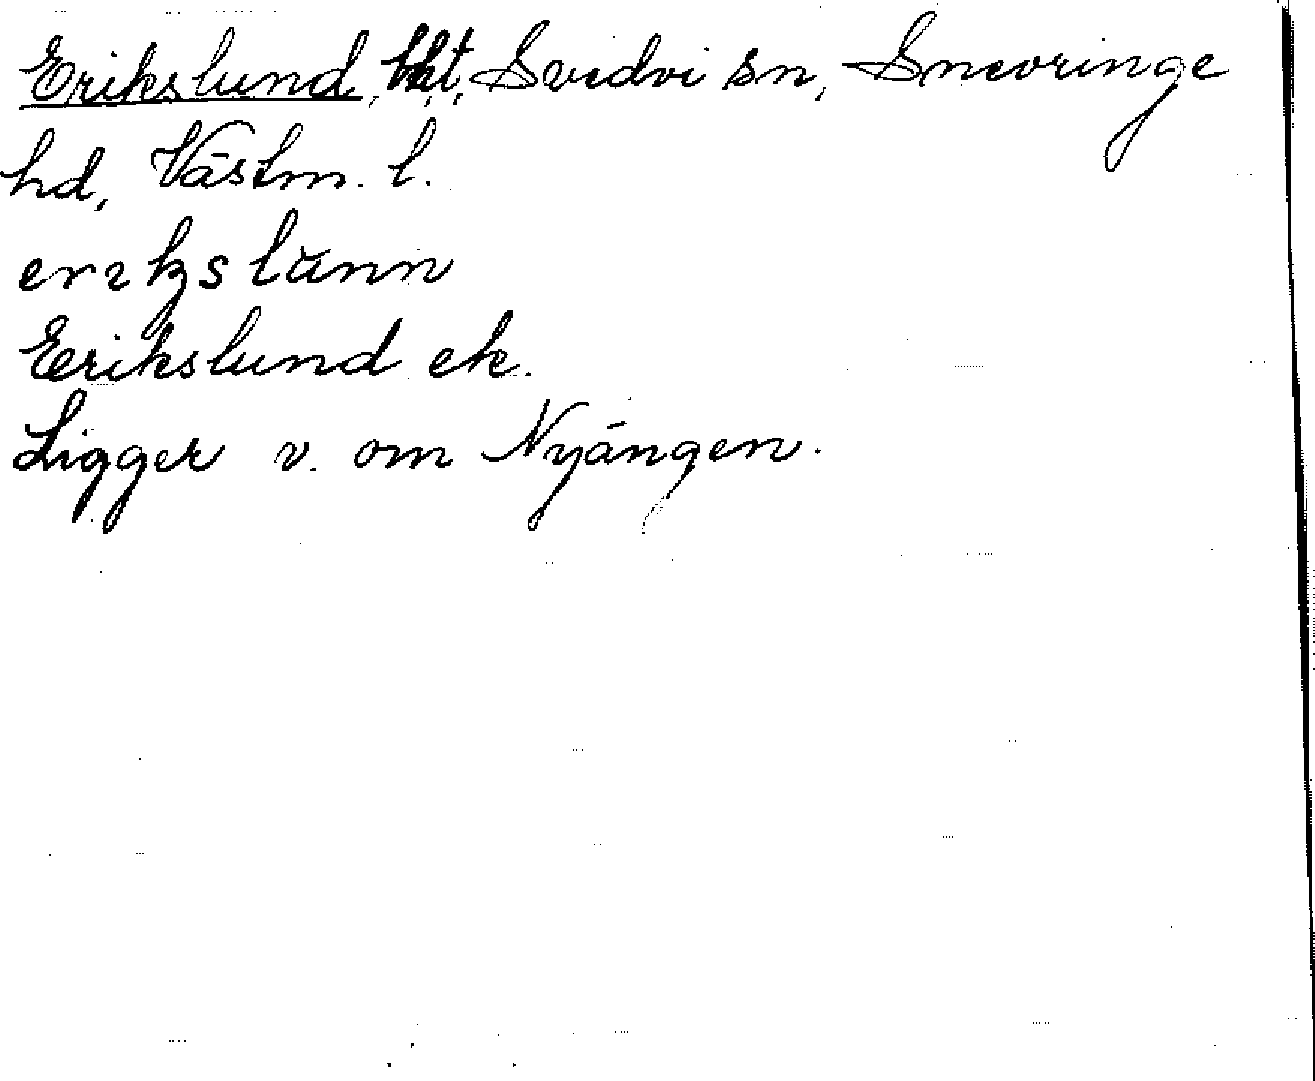 Erikslund, Svedvi sn, Snevringe
hd, Västm. l.
Erikslund ek.
Ligger v. om Nyängen.